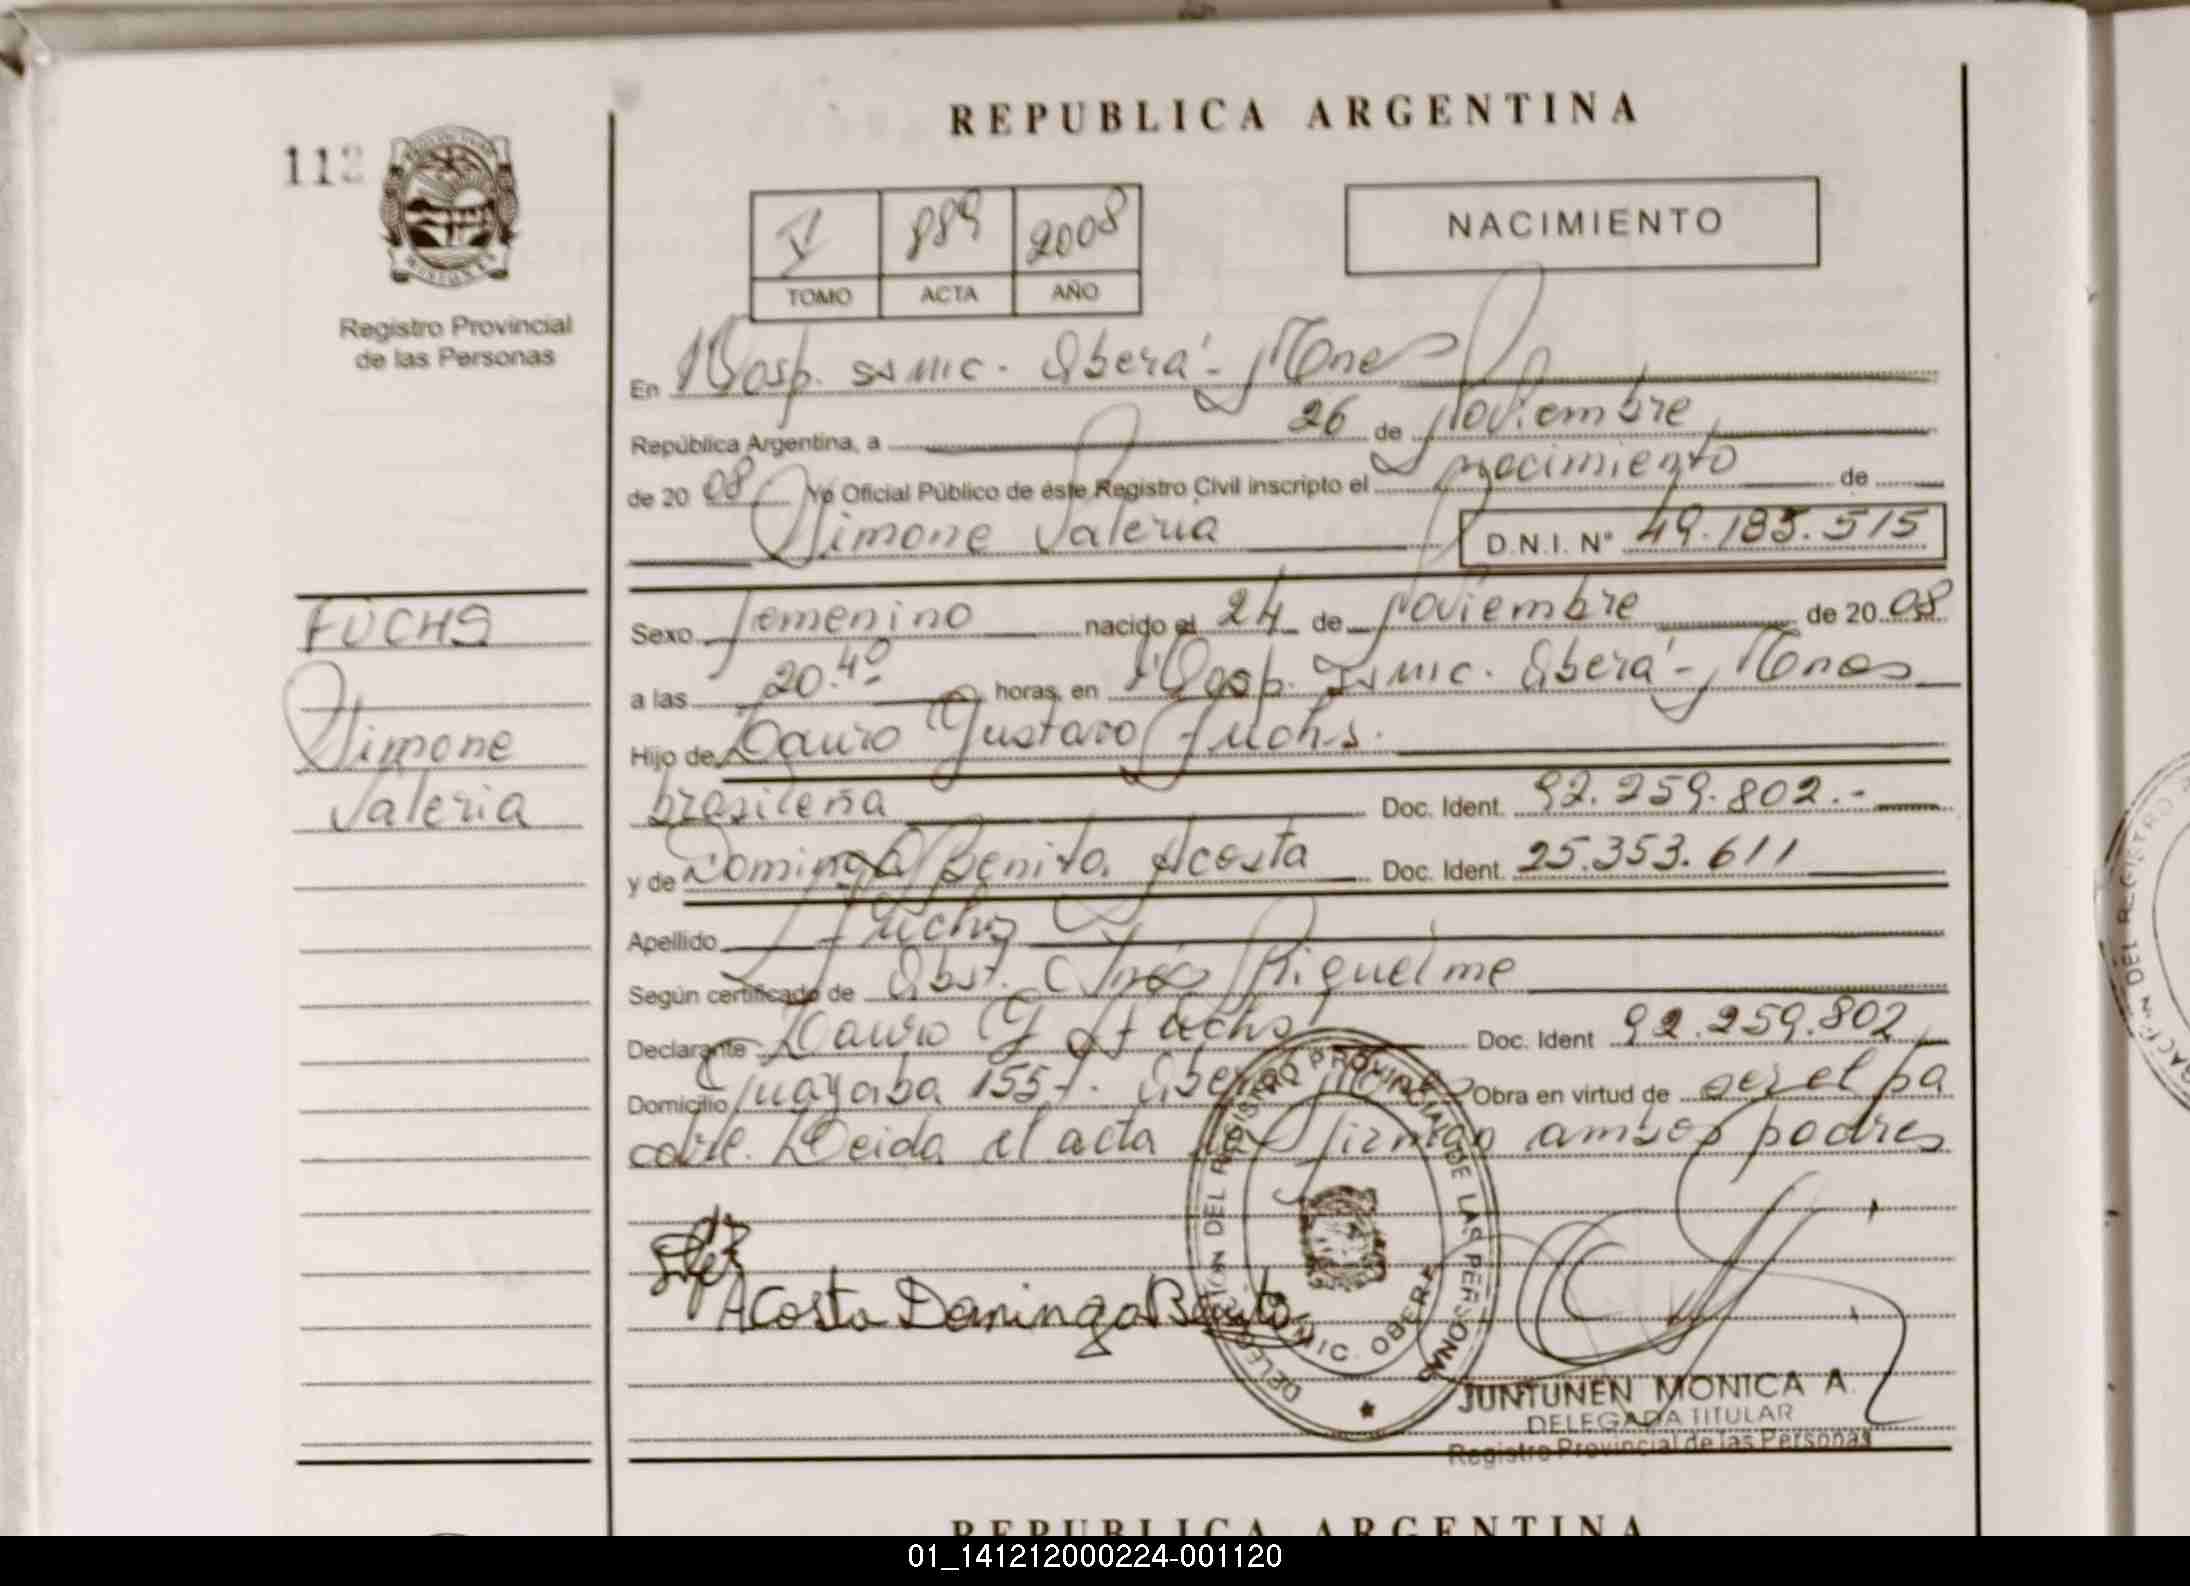 REPUBLICA ARGENTINA
11
V 889 2008
TOMO ACTA AÑO
NACIMIENTO
Registro Provincial
de las Personas
En Hosp. SAMIC. Oberá - Mnes
República Argentina, a 26 de Noviembre
de 20 08 Yo Oficial Público de éste Registro Civil inscripto el nacimiento de
Simone Valeria D.N.I. Nº 49.185.515
FUCHS
Simone
Valeria
Sexo femenino nacido el 24 de Noviembre de 20 08
a las 20.40 horas, en Hosp. SAMIC. Oberá - Mnes
Hijo de Lauro Gustavo Fuchs.
brasileña Doc. Ident. 92.259.802.-
y de Dominga Benita Acosta Doc. Ident. 25.353.611
Apellido Fuchs
Según certificado de Obst. Inés Riquelme
Declarante Lauro G Fuchs Doc. Ident 92.259.802
Domicilio Guayaba 1557. Oberá Mnes Obra en virtud de ser el pa
dre. Leida el acta la firman ambos padres
Acosta Dominga Benita
DELEGACION DEL REGISTRO PROVINCIAL DE LAS PERSONAS
SAMIC. OBERA
JUNTUNEN MONICA A.
DELEGADA TITULAR
Registro Provincial de las Personas
REPUBLICA ARGENTINA
01_141212000224-001120